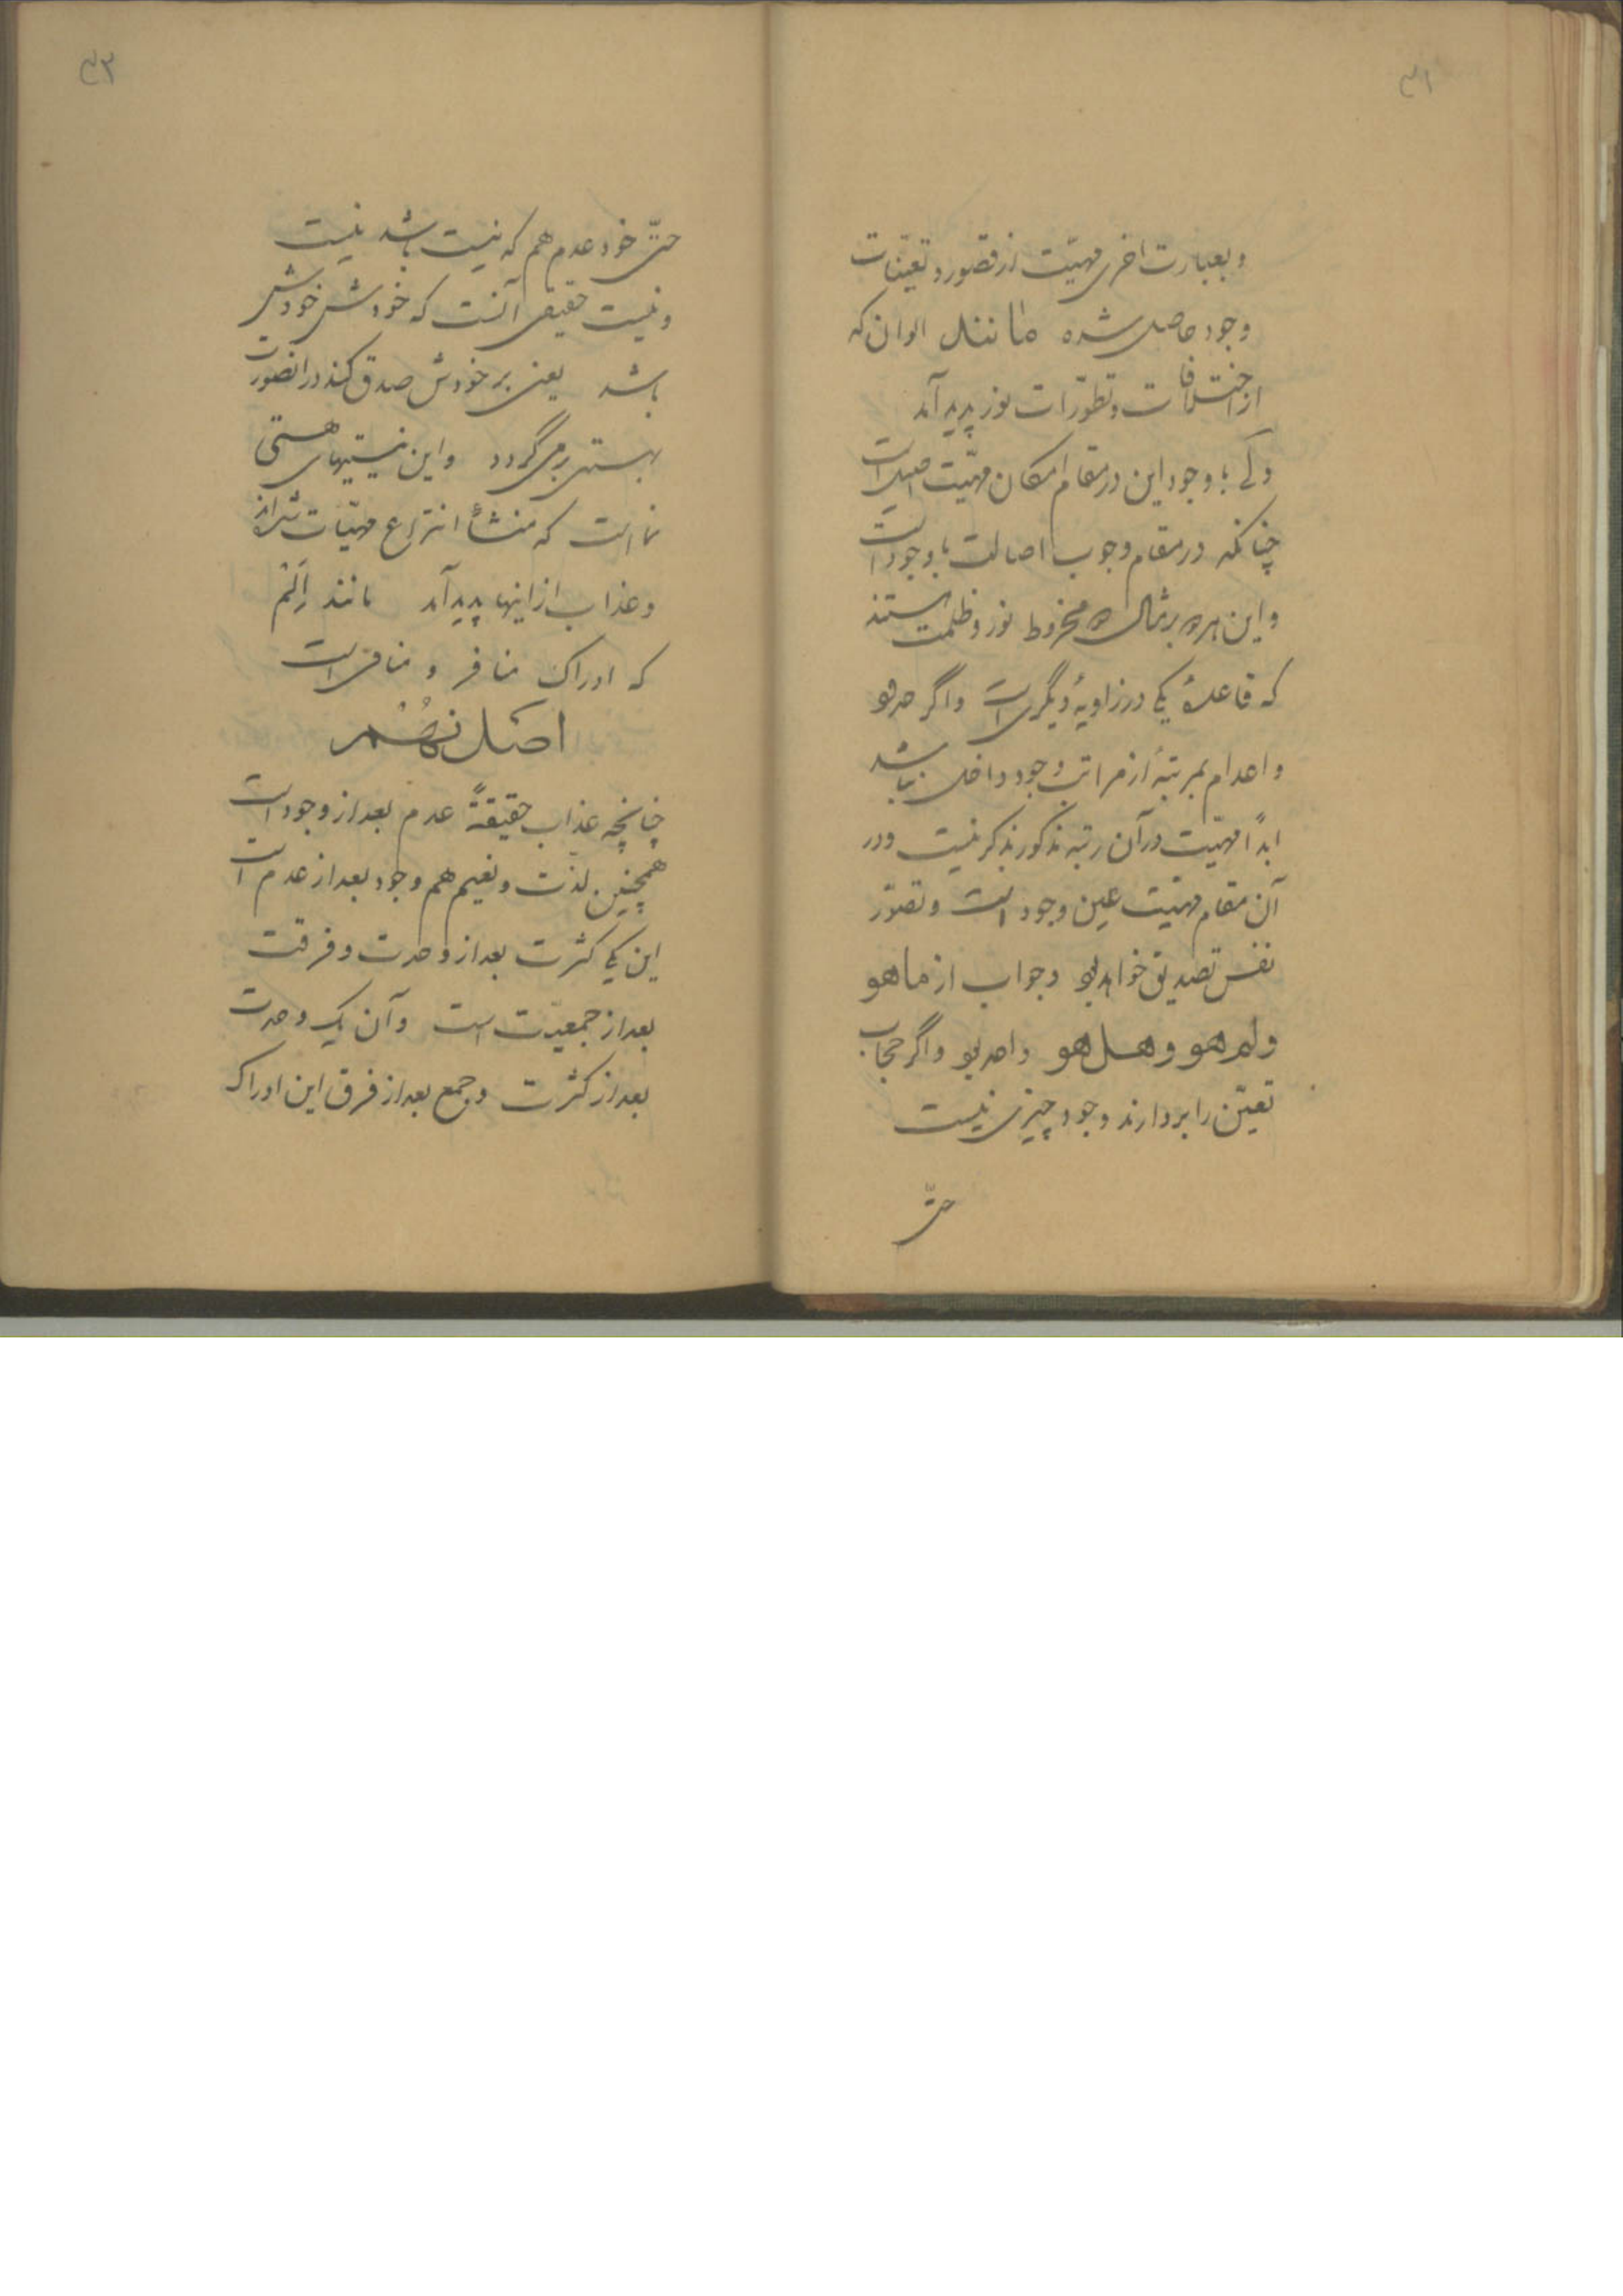 ۴۲
وبعبارت اخری مهیّت از قصور و تعینات
وجود حاصل شده مانند الوان که
از اختلافات و تطوّرات نور پدید آمد
ولی با وجود این در مقام امکان مهیّت اصیل است
چنانکه در مقام وجوب اصالت با وجود است
و این هر دو بر مثال دو مخروط نور و ظلمت هستند
که قاعدهٔ یکی در زاویهٔ دیگری است و اگر حدود
و اعدام بمرتبهٔ از مراتب وجود داخل نباشد
ابداً مهیّت در آن رتبه مذکور بذکر نیست و در
آن مقام مهیّت عین وجود است و تصوّر
نفس تصدیق خواهد بود و جواب از ماهو
ولم هو وهل هو واحد بود و اگر حجاب
تعیّن را بردارند وجود چیزی نیست
حتّی
۴۳
حتّی خود عدم هم که نیست باشد نیست
و نیست حقیقی آنست که خودش خودش
باشد یعنی بر خودش صدق کند در انصورت
بهستی برمی‌گردد و این نیستیهای هستی
نما است که منشأ انتزاع مهیّات شده‌اند
و عذاب از اینها پدید آمد مانند اَلَم
که ادراک منافر و منافی است
اصل نهم
چنانچه عذاب حقیقةً عدم بعد از وجود است
همچنین لذّت و نعیم هم وجود بعد از عدم است
این یکی کثرت بعد از وحدت و فرقت
بعد از جمعیّت است و آن یک وحدت
بعد از کثرت و جمع بعد از فرق این ادراک